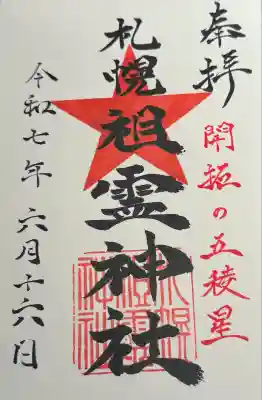 奉拝
開拓の五稜星
札幌祖霊神社
令和七年 六月十六日